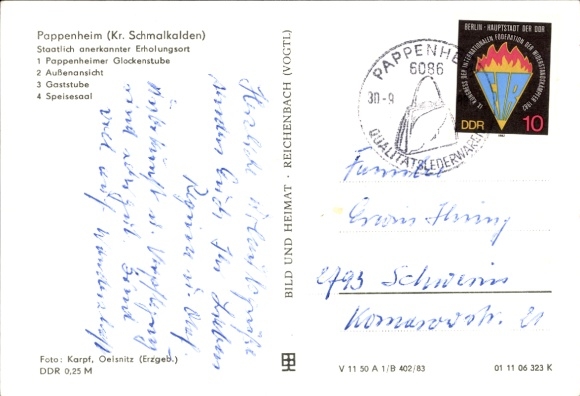 Pappenheim (Kr. Schmalkalden)
Staatlich anerkannter Erholungsort
1 Pappenheimer Glockenstube
2 Außenansicht
3 Gaststube
4 Speisesaal
Herzliche Urlaubsgrüße
senden Euch Ihr Lieben
Regina u. Olaf.
Unterkunft u. Verpflegung
sind sehr gut. Sind
viel auf Wanderschaft
Foto: Karpf, Oelsnitz (Erzgeb.)
DDR 0,25 M
BILD UND HEIMAT · REICHENBACH (VOGTL)
PAPPENHEIM
6086
30-9
QUALITÄTSLEDERWAREN
BERLIN · HAUPTSTADT DER DDR
IX. KONGRESS DER INTERNATIONALEN FÖDERATION DER WIDERSTANDSKÄMPFER 1982
FIR
DDR 10
Familie
Erwin
2793 Schwerin
Komarowstr. 21
V 11 50 A 1/B 402/83
01 11 06 323 K